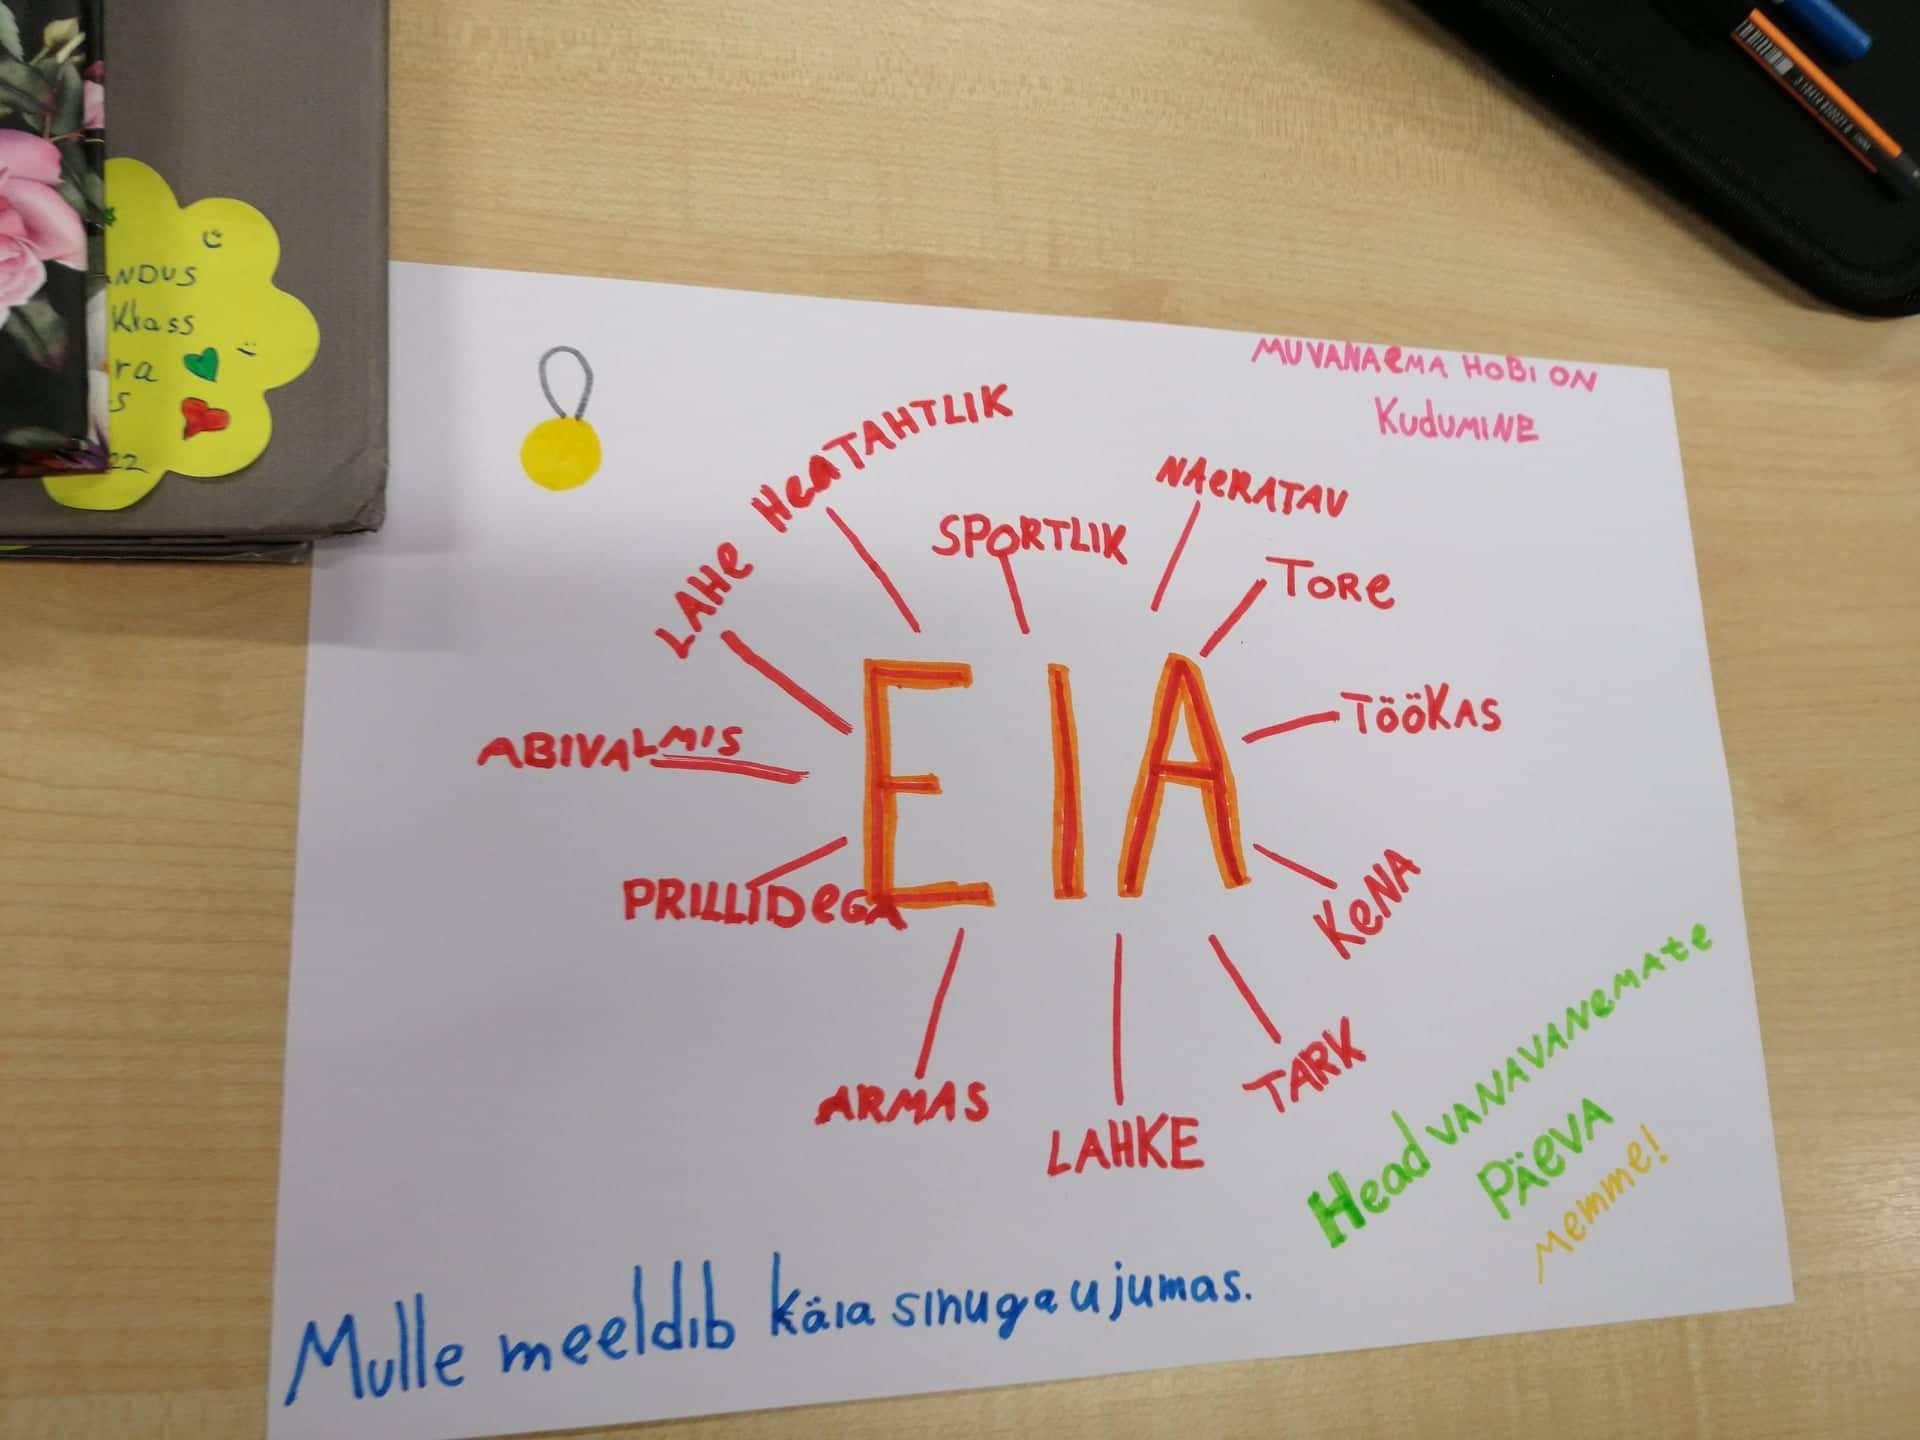 NDUS
Klass
ra
s
22
MU VANAEMA HOBI ON
KUDUMINE
HEATAHTLIK
NAERATAV
SPORTLIK
LAHE
TORE
EIA
TÖÖKAS
ABIVALMIS
PRILLIDEGA
KENA
ARMAS
LAHKE
TARK
Head VANAVANEMATE
PÄEVA
MEMME!
Mulle meeldib käia sinuga ujumas.